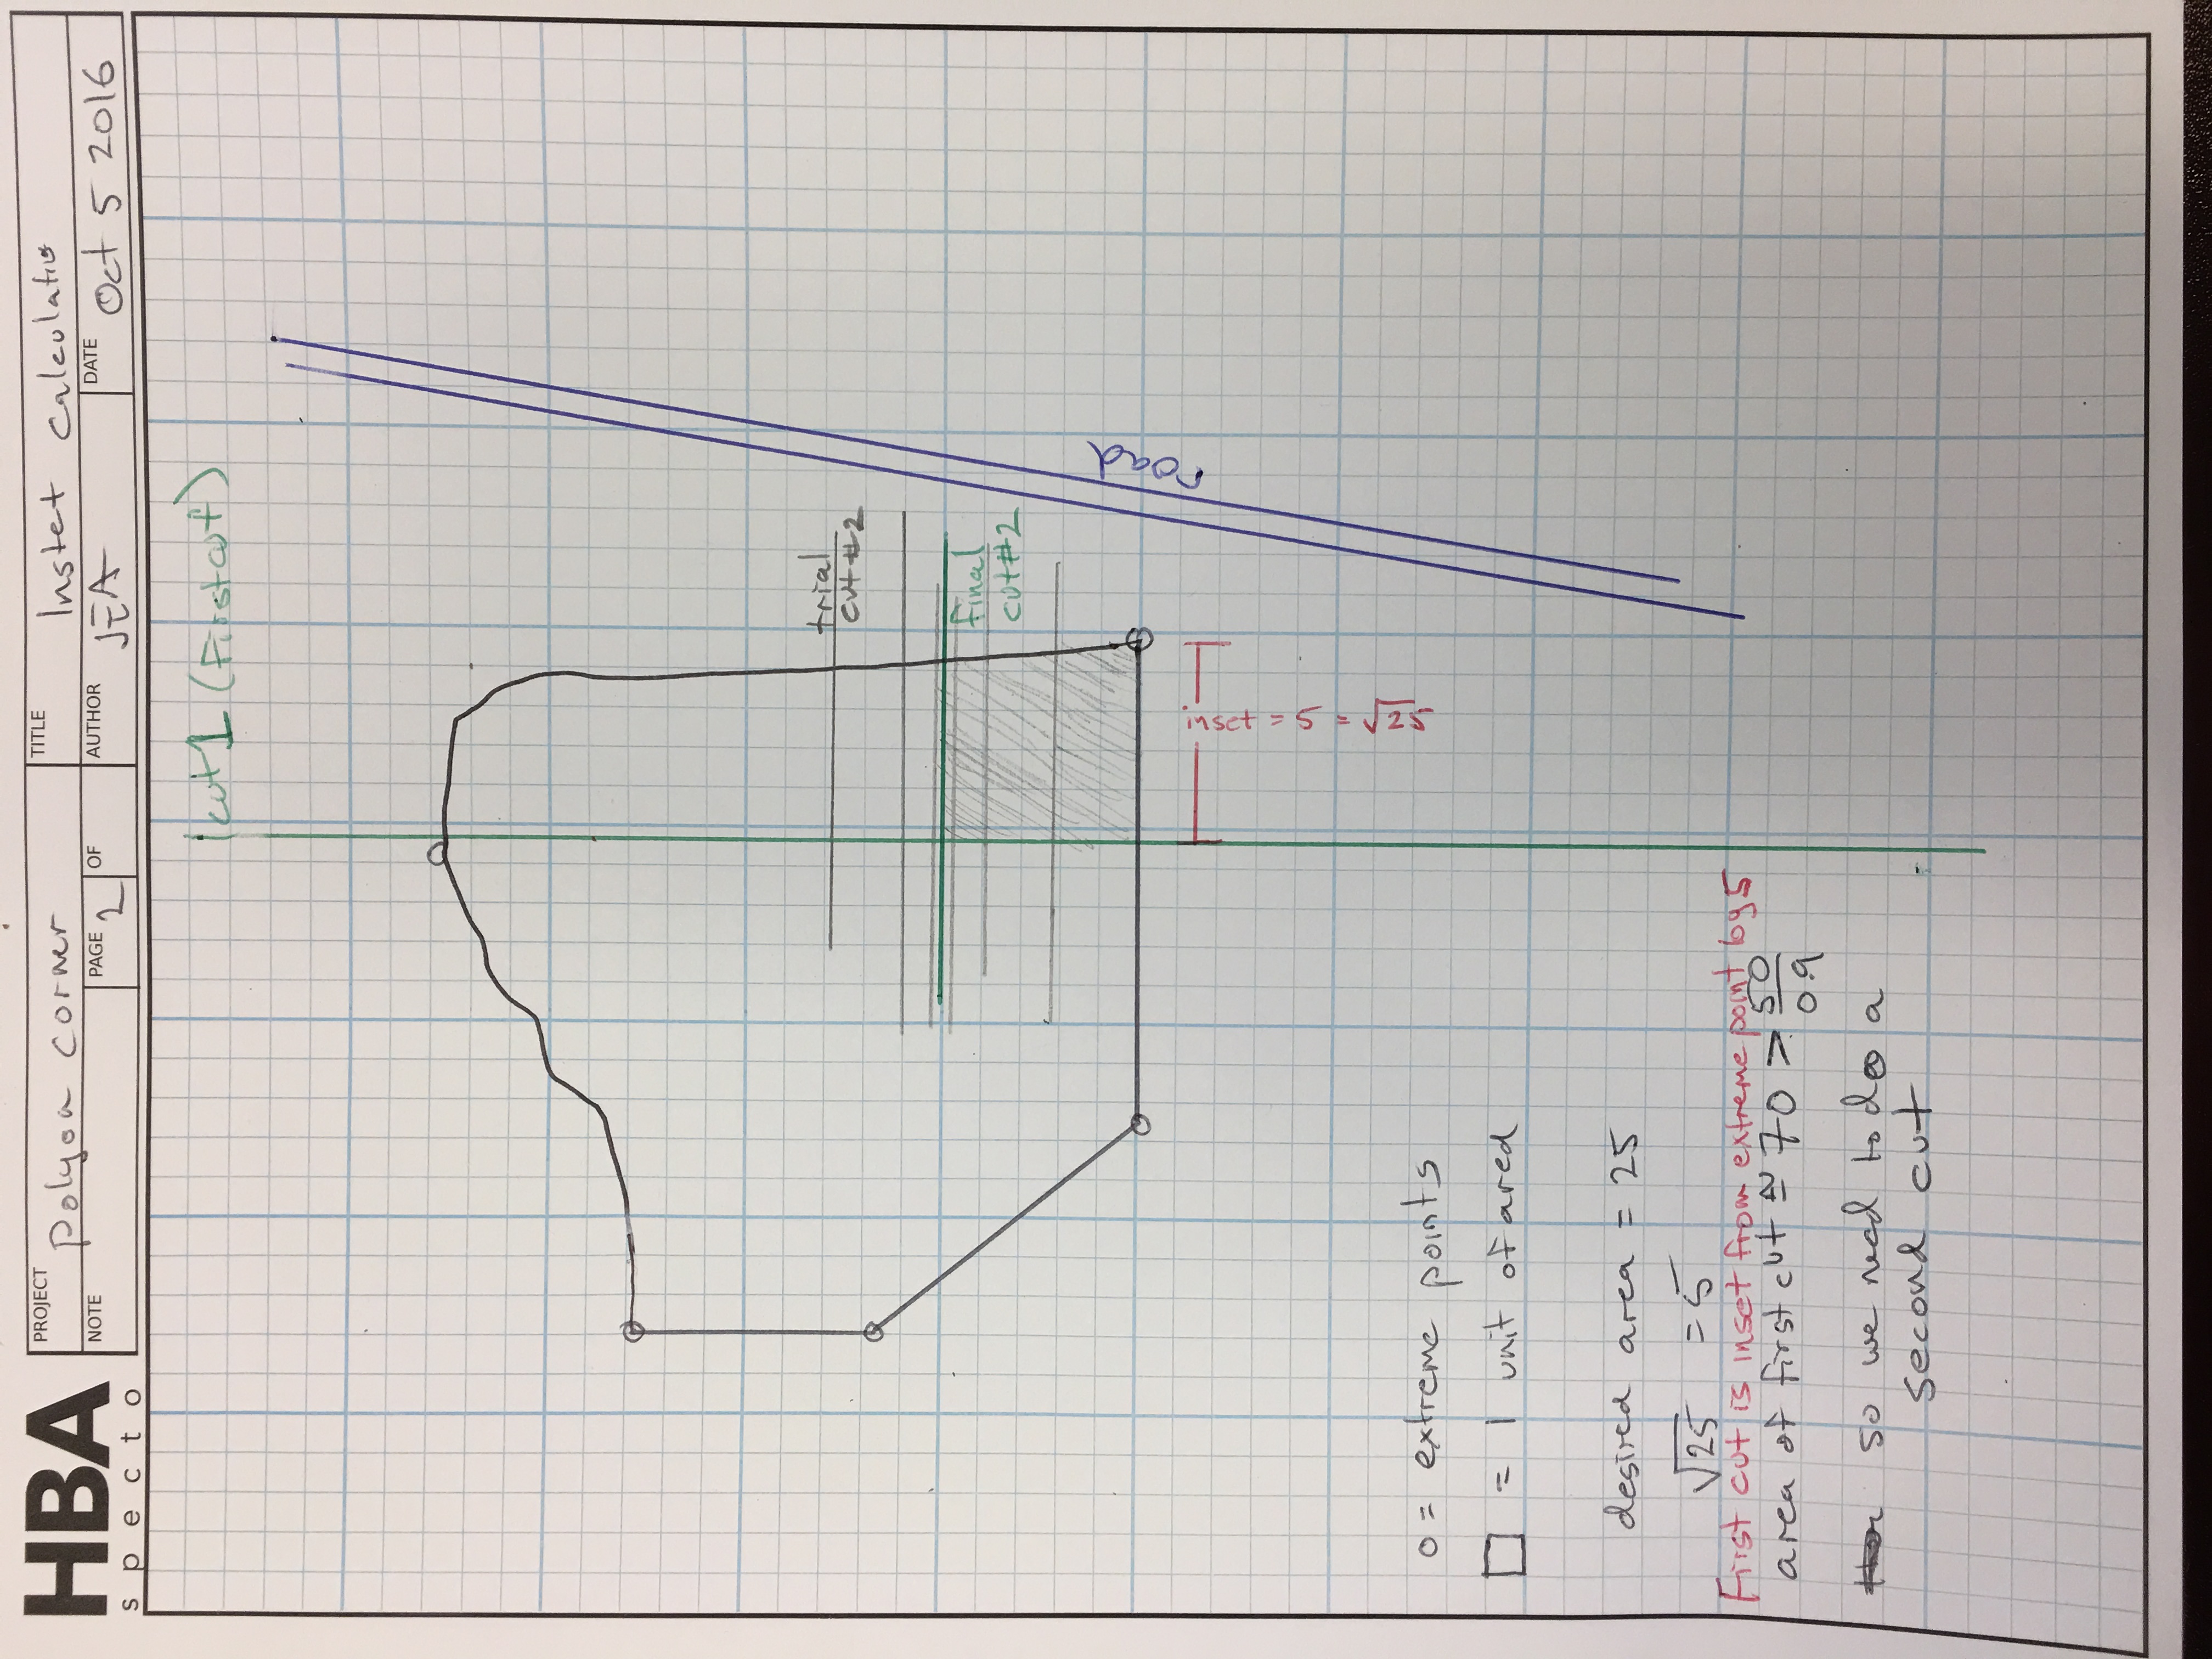 HBA
specto
PROJECT
Polygon corner
TITLE
Instet Calculatio
NOTE
PAGE 2
OF
AUTHOR
JEA
DATE
Oct 5 2016
cut 1 (First cut)
trial
cut #2
final
cut #2
road
inset = 5 = √25
o = extreme points
□ = 1 unit of area
desired area = 25
√25 = 5
First cut is inset from extreme point by 5
area of first cut ≅ 70 > 50/0.9
so we need to do a
second cut